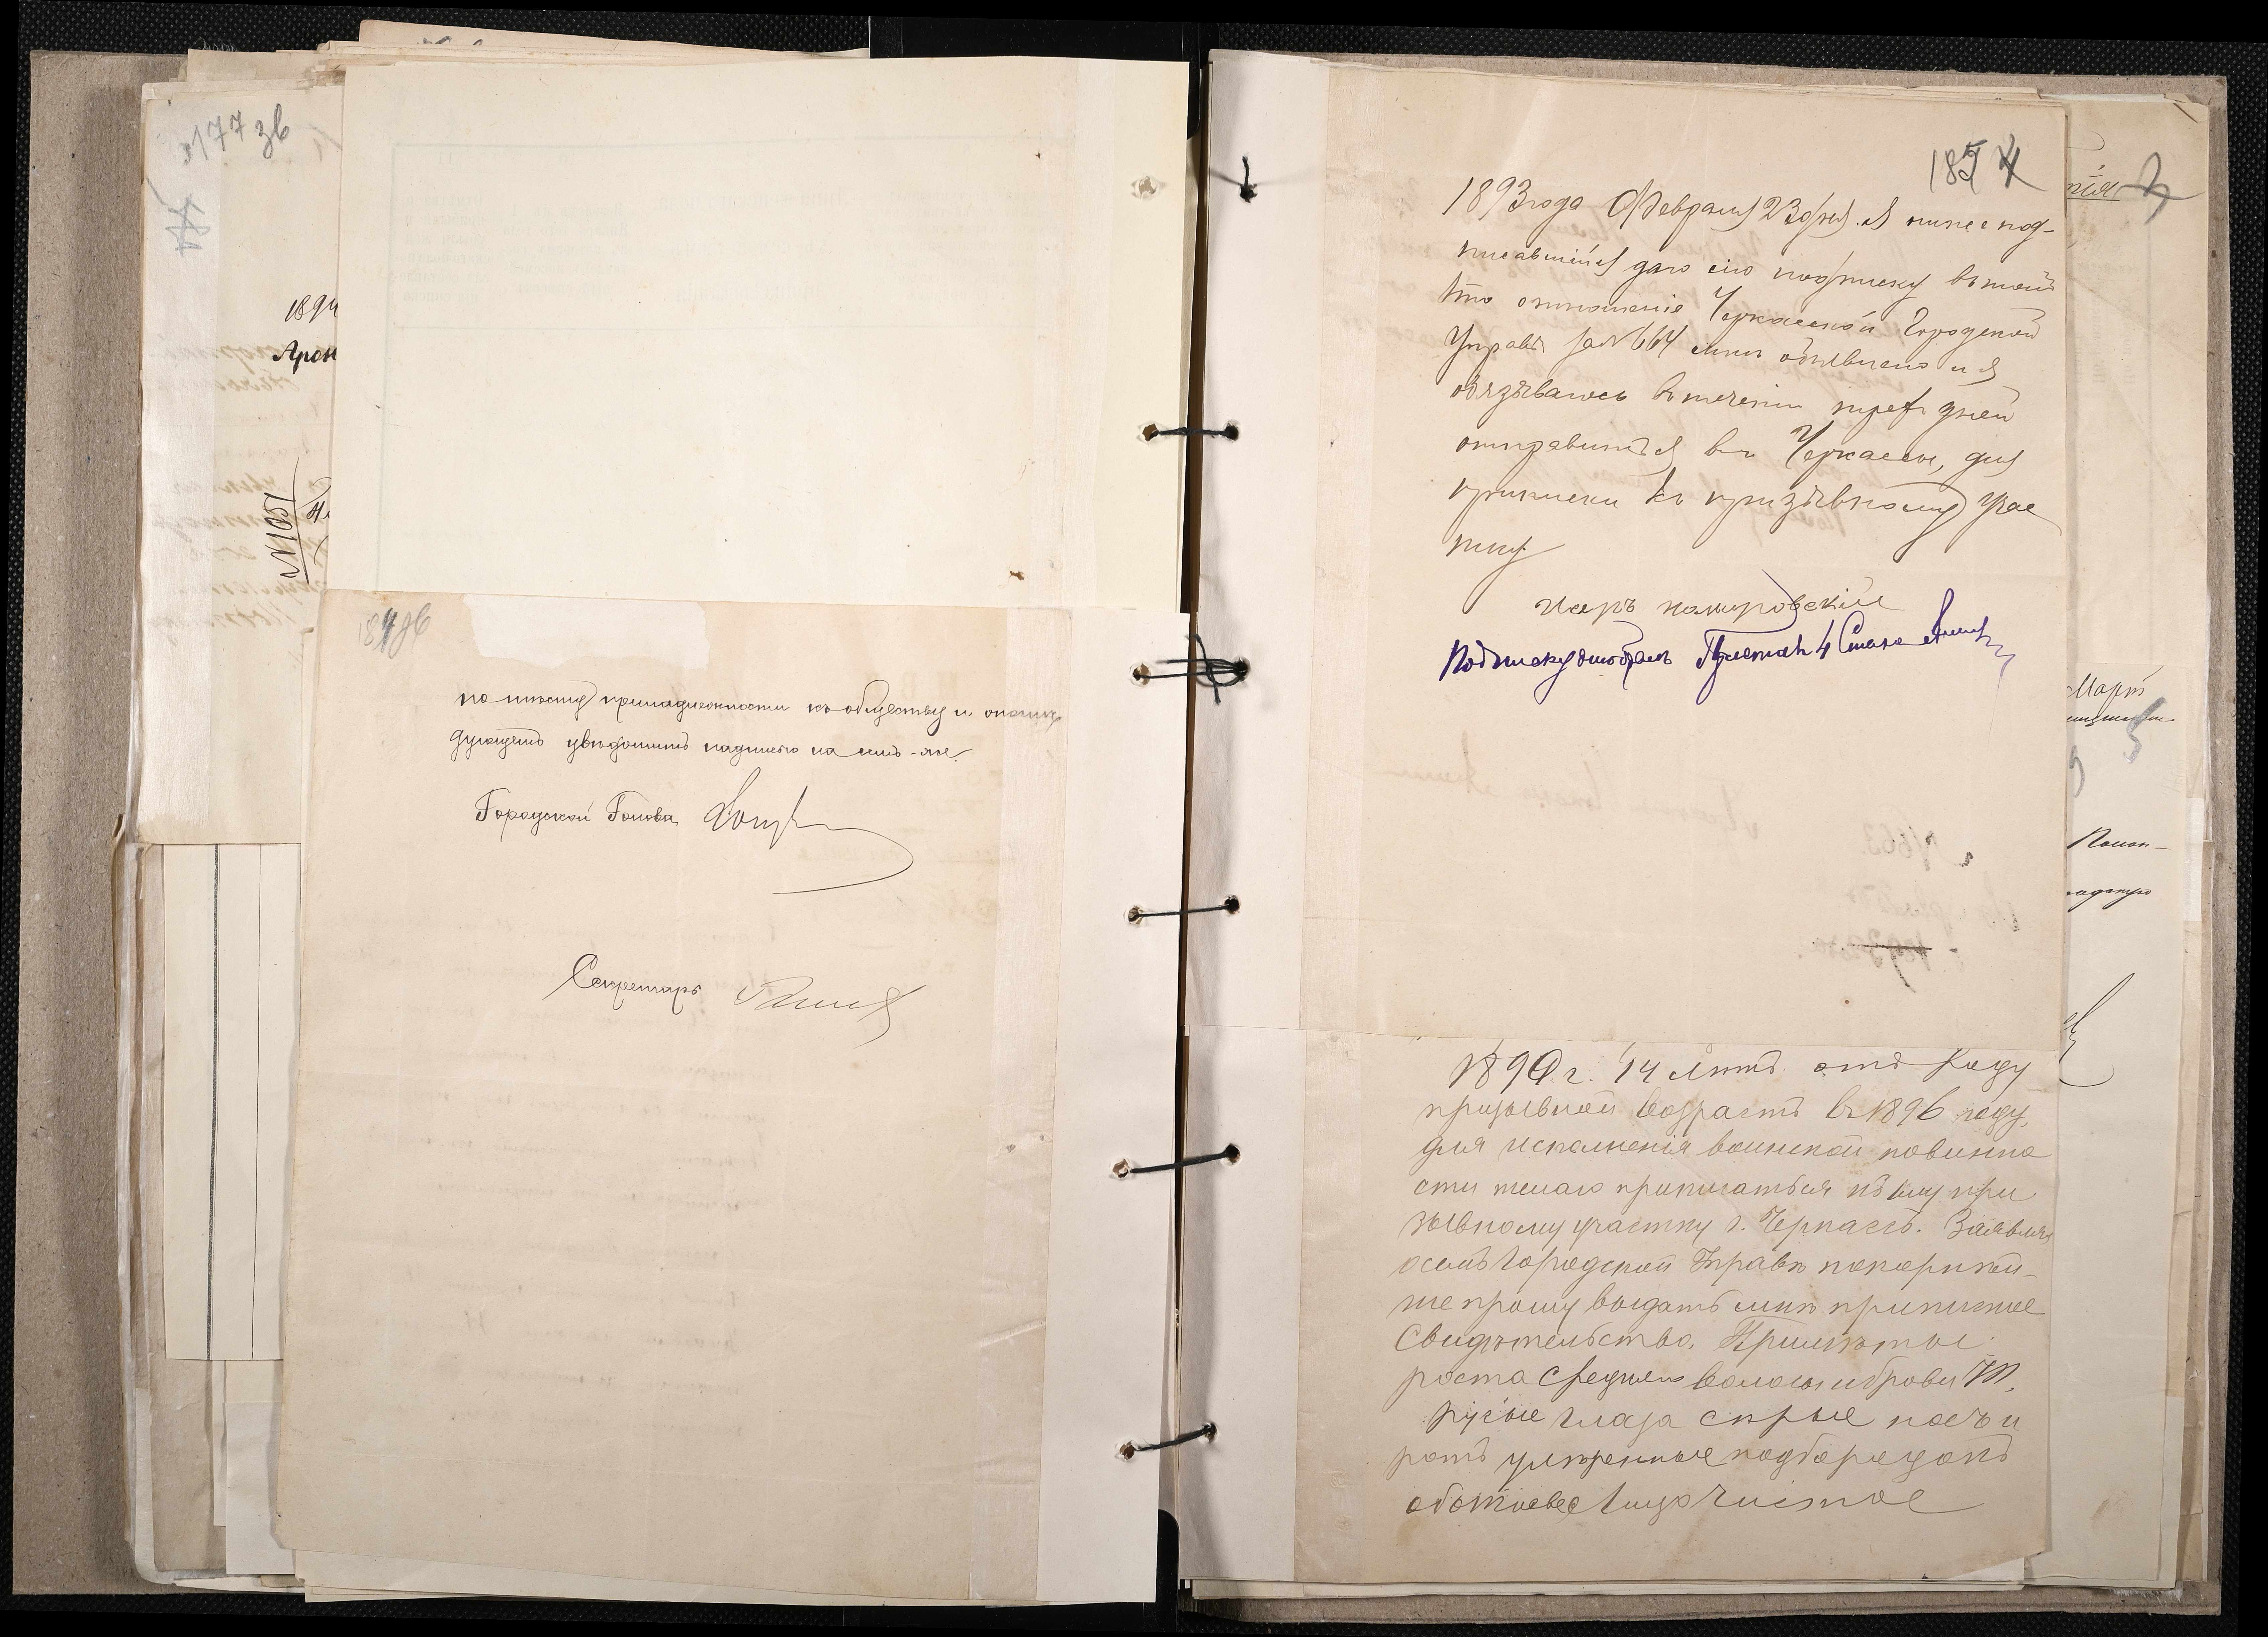 177 зв
1894
Арон
№ 1051
184 зв
по мѣсту принадлежности къ обществу и о послѣ
дующемъ увѣдомить надписью на семъ-же.
Городской Голова
Секретарь
185
1893 года Февраля 23 дня. Я ниже под-
писавшійся даю сію подписку въ томъ
что отношеніе Черкасской Городской
Управы за № 664 мнѣ объявлено и я
обязываюсь въ теченіи трехъ дней
отправиться въ Черкассы, для
приписки къ призывному учас
тку
Подписку отобралъ Приставъ 4 Стана
1890 г. 14 лѣтъ отъ роду
призывной возрастъ въ 1896 году,
для исполненія воинской повинно
сти желаю приписаться къ при
зывному участку г. Черкассъ. Заявляя
о семъ Городской Управѣ покорнѣй-
ше прошу выдать мнѣ приписное
Свидѣтельство. Примѣты:
роста средняго волосы и брови
русые глаза сѣрые носъ и
ротъ умѣренные подбородокъ
лицо чистое
Мартъ